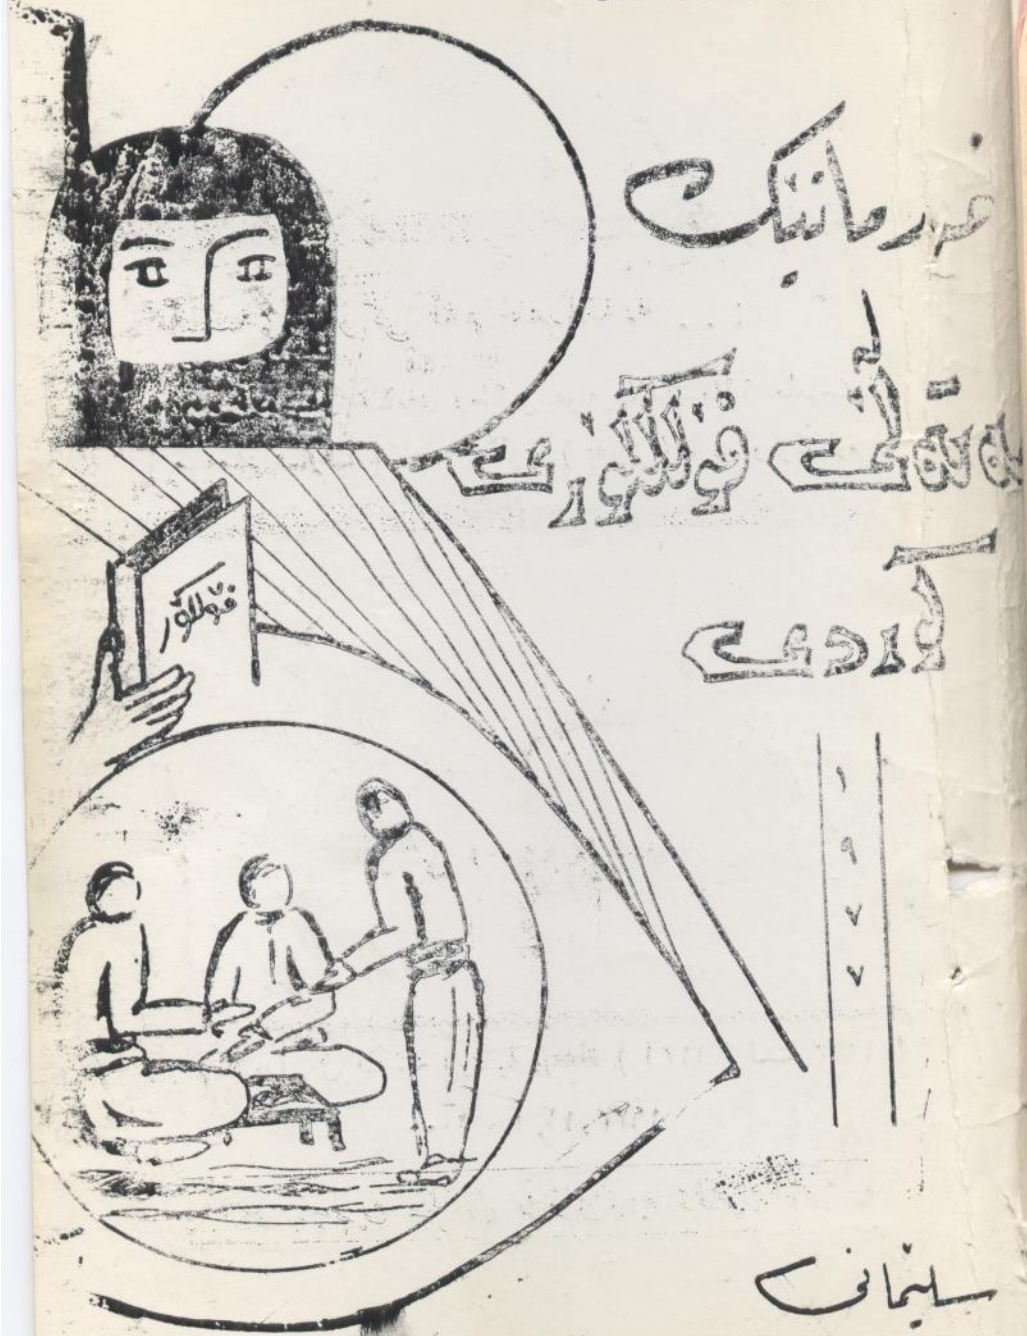 خەرمانێک
لە
فۆلکلۆری
کوردی
فۆلکلۆر
١٩٧٧
سلێمانی